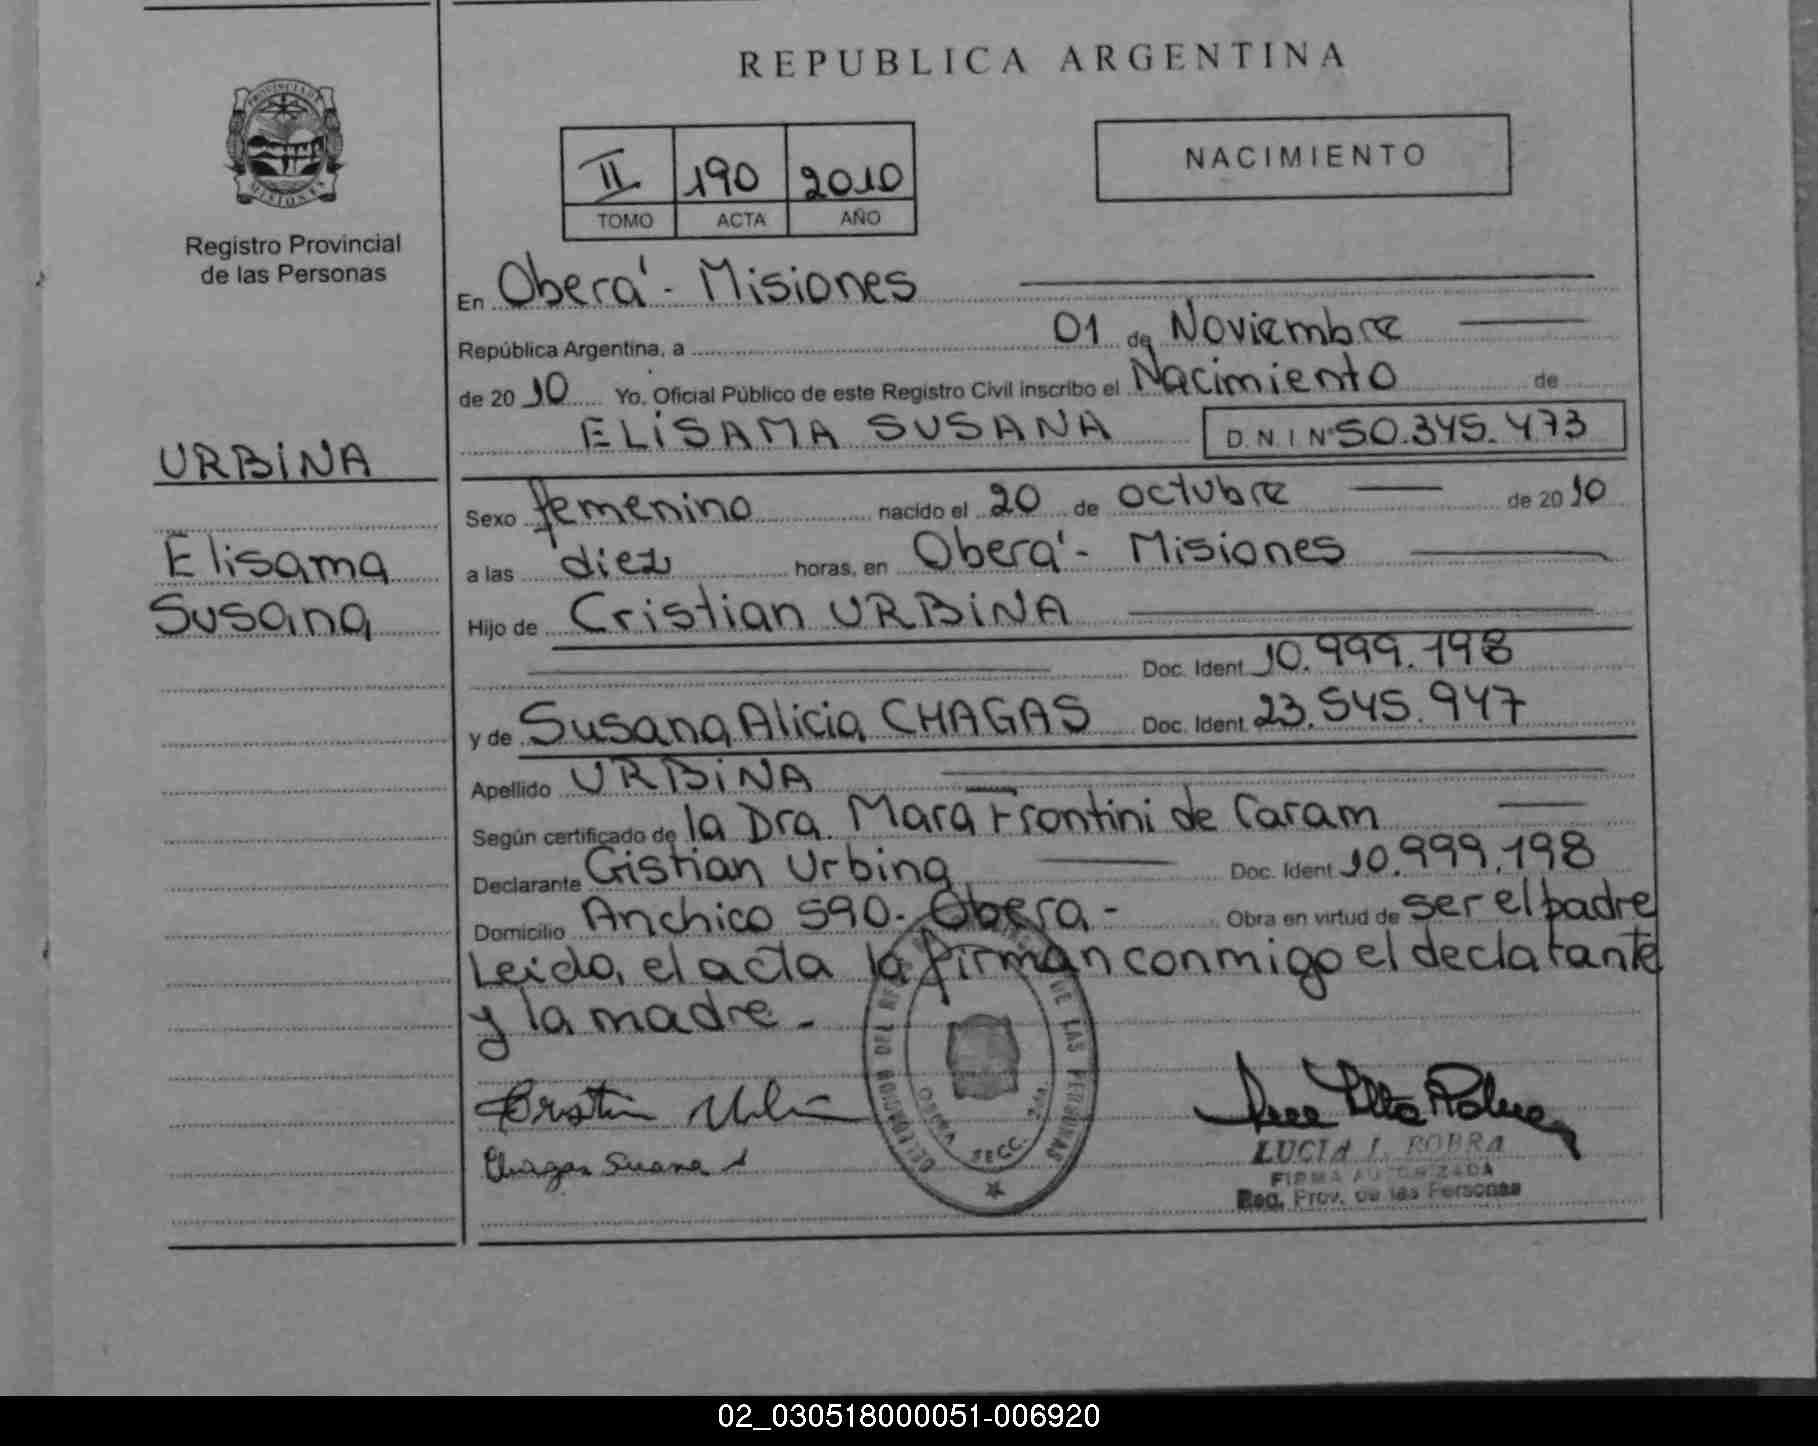 REPUBLICA ARGENTINA
PROVINCIA DE
MISIONES
Registro Provincial
de las Personas
II 190 2010
TOMO ACTA AÑO
NACIMIENTO
En Oberá - Misiones
República Argentina, a 01 de Noviembre
de 20 10 Yo, Oficial Público de este Registro Civil inscribo el Nacimiento de
ELISAMA SUSANA D.N.I Nº 50.345.473
URBINA
Elisama
Susana
Sexo femenino nacido el 20 de octubre de 20 10
a las diez horas, en Oberá - Misiones
Hijo de Cristian URBINA
Doc. Ident 10.999.198
y de Susana Alicia CHAGAS Doc. Ident. 23.545.947
Apellido URBINA
Según certificado de la Dra. Mara Frontini de Caram
Declarante Cistian Urbina Doc. Ident 10.999.198
Domicilio Anchico 590. Obera - Obra en virtud de ser el padre
Leido, el acta la firman conmigo el declarante
y la madre. -
DELEGACION DEL DE LAS PERSONAS
SECC. 2da.
Chagas Susana A
LUCIA I. ROBRA
FIRMA AUTORIZADA
Reg. Prov. de las Personas
02_030518000051-006920